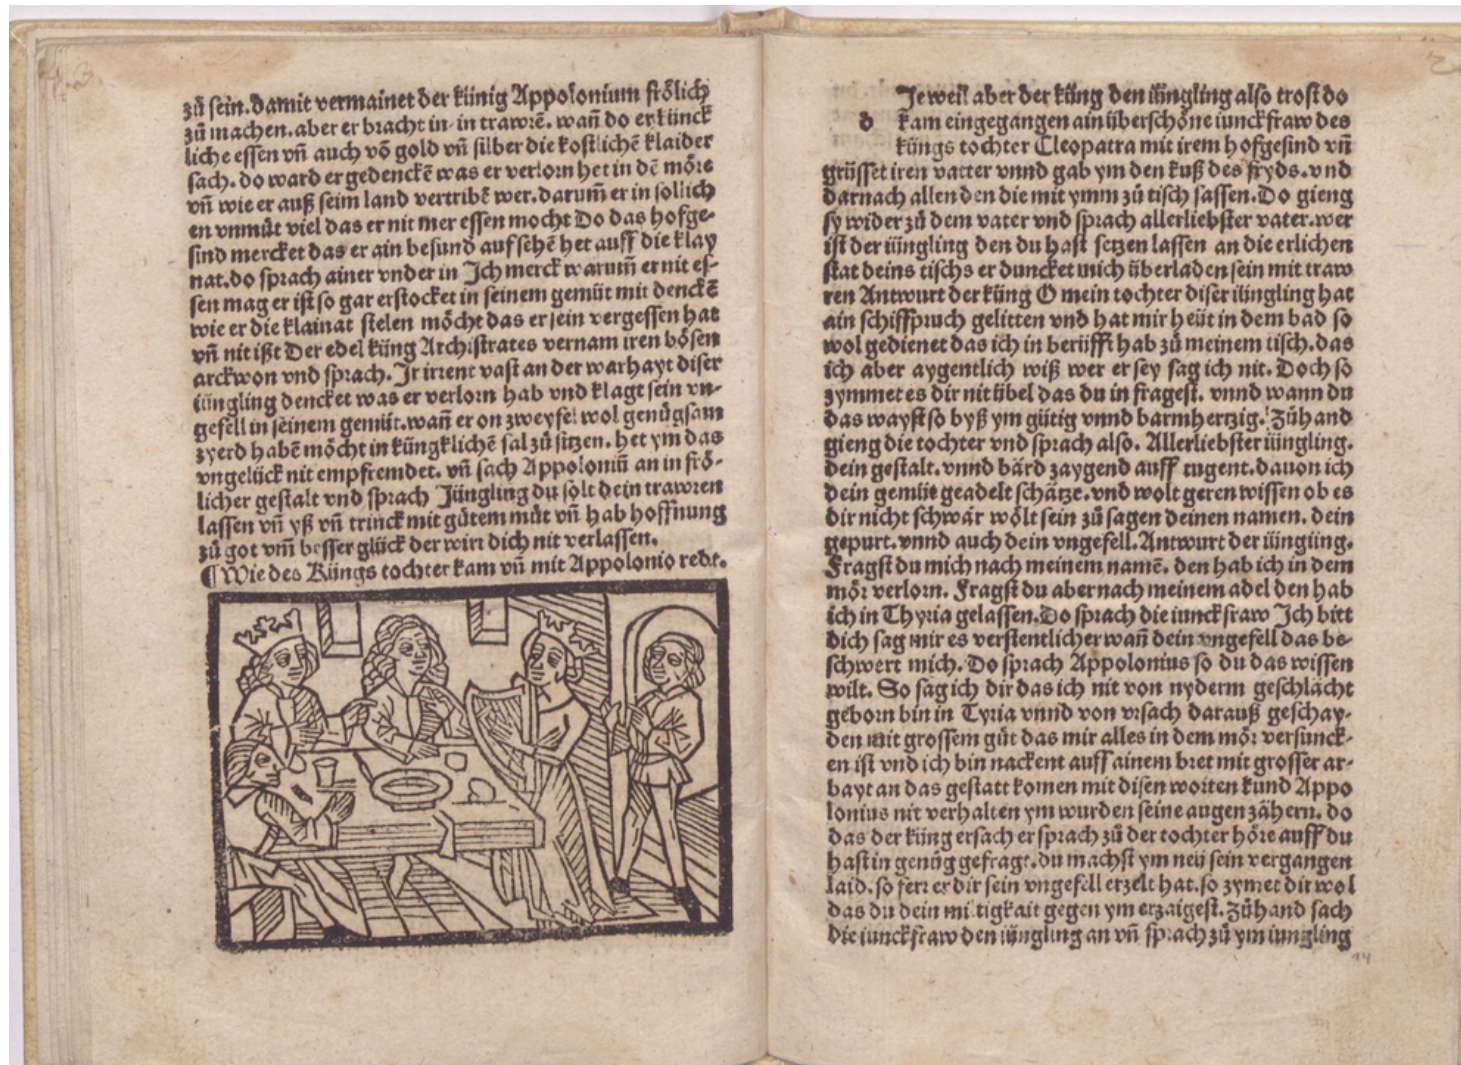 zů sein. damit vermainet der künig Appolonium frölich
zů machen. aber er bracht in in trawrē. wañ do er künck
liche essen vñ auch võ gold vñ silber die kostlichē klaider
sach. do ward er gedenckē was er verlorn het in dē möre
vñ wie er auß seim land vertribē wer. darum̄ er in sollich
en vnmůt viel das er nit mer essen mocht Do das hofge-
sind mercket das er ain besund aufsehē het auff die klay
nat. do sprach ainer vnder in Ich merck warum̄ er nit es-
sen mag er ist so gar erstocket in seinem gemüt mit denckē
wie er die klainat stelen möcht das er sein vergessen hat
vñ nit ißt Der edel küng Archistrates vernam iren bösen
arckwon vnd sprach. Ir irrent vast an der warhayt diser
iüngling dencket was er verlorn hab vnd klagt sein vn-
gefell in seinem gemüt. wañ er on zweyfel wol genůgsam
zyerd habē möcht in küngklichē sal zů sitzen. het ym das
vngelück nit empfremdet. vñ sach Appoloniū an in frö-
licher gestalt vnd sprach Jüngling du solt dein trawren
lassen vñ yß vñ trinck mit gůtem můt vñ hab hoffnung
zů got vm̄ besser glück der wirt dich nit verlassen.
¶ Wie des Küngs tochter kam vñ mit Appolonio redt.
Jeweil aber der küng den iüngling also trost do
d kam eingegangen ain überschöne iunckfraw des
küngs tochter Cleopatra mit irem hofgesind vñ
grüsset iren vatter vnnd gab ym den kuß des fryds. vnd
darnach allen den die mit ymm zů tisch sassen. Do gieng
sy wider zů dem vater vnd sprach allerliebster vater. wer
ist der iüngling den du hast setzen lassen an die erlichen
stat deins tischs er duncket mich überladen sein mit traw
ren Antwurt der küng O mein tochter diser iüngling hat
ain schiffpruch gelitten vnd hat mir heüt in dem bad so
wol gedienet das ich in berüfft hab zů meinem tisch. das
ich aber aygentlich wiß wer er sey sag ich nit. Doch so
zymmet es dir nit übel das du in fragest. vnnd wann du
das wayst so byß ym gütig vnnd barmhertzig. Zůhand
gieng die tochter vnd sprach also. Allerliebster iüngling.
dein gestalt. vnnd bärd zaygend auff tugent. dauon ich
dein gemüte geadelt schätze. vnd wolt geren wissen ob es
dir nicht schwär wölt sein zů sagen deinen namen. dein
gepurt. vnnd auch dein vngefell. Antwurt der iüngling.
Fragst du mich nach meinem namē. den hab ich in dem
mör verlorn. Fragst du aber nach meinem adel den hab
ich in Thyria gelassen. Do sprach die iunckfraw Ich bitt
dich sag mir es verstentlicher wañ dein vngefell das be-
schwert mich. Do sprach Appolonius so du das wissen
wilt. So sag ich dir das ich nit von nyderm geschlächt
geborn bin in Tyria vnnd von vrsach darauß geschay-
den mit grossem gůt das mir alles in dem mör versunck-
en ist vnd ich bin nackent auff ainem bret mit grosser ar-
bayt an das gestatt komen mit disen worten kund Appo
lonius nit verhalten ym wurden seine augen zähern. do
das der küng ersach er sprach zů der tochter höre auff du
hast in genůg gefragt. du machst ym neü sein vergangen
laid. so ferr er dir sein vngefell erzelt hat. so zymet dir wol
das du dein miltigkait gegen ym erzaigest. Zůhand sach
die iunckfraw den iüngling an vñ sprach zů ym iungling
14